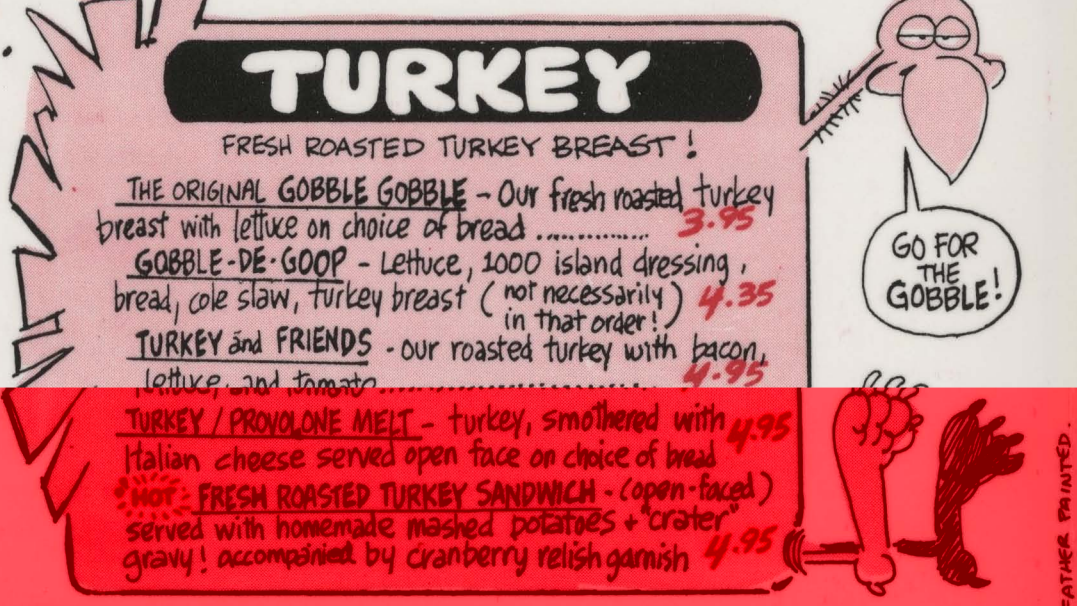 TURKEY
FRESH ROASTED TURKEY BREAST!
THE ORIGINAL GOBBLE GOBBLE - Our fresh roasted turkey
breast with lettuce on choice of bread .............. 3.95
GOBBLE-DE-GOOP - Lettuce, 1000 island dressing,
bread, cole slaw, turkey breast (not necessarily in that order!) 4.35
TURKEY and FRIENDS - our roasted turkey with bacon,
lettuce, and tomato.............................. 4.95
TURKEY / PROVOLONE MELT - turkey, smothered with 4.95
Italian cheese served open face on choice of bread
HOT FRESH ROASTED TURKEY SANDWICH - (open-faced)
served with homemade mashed potatoes + "crater"
gravy! accompanied by cranberry relish garnish 4.95
GO FOR
THE
GOBBLE!
FATHER PAINTED.